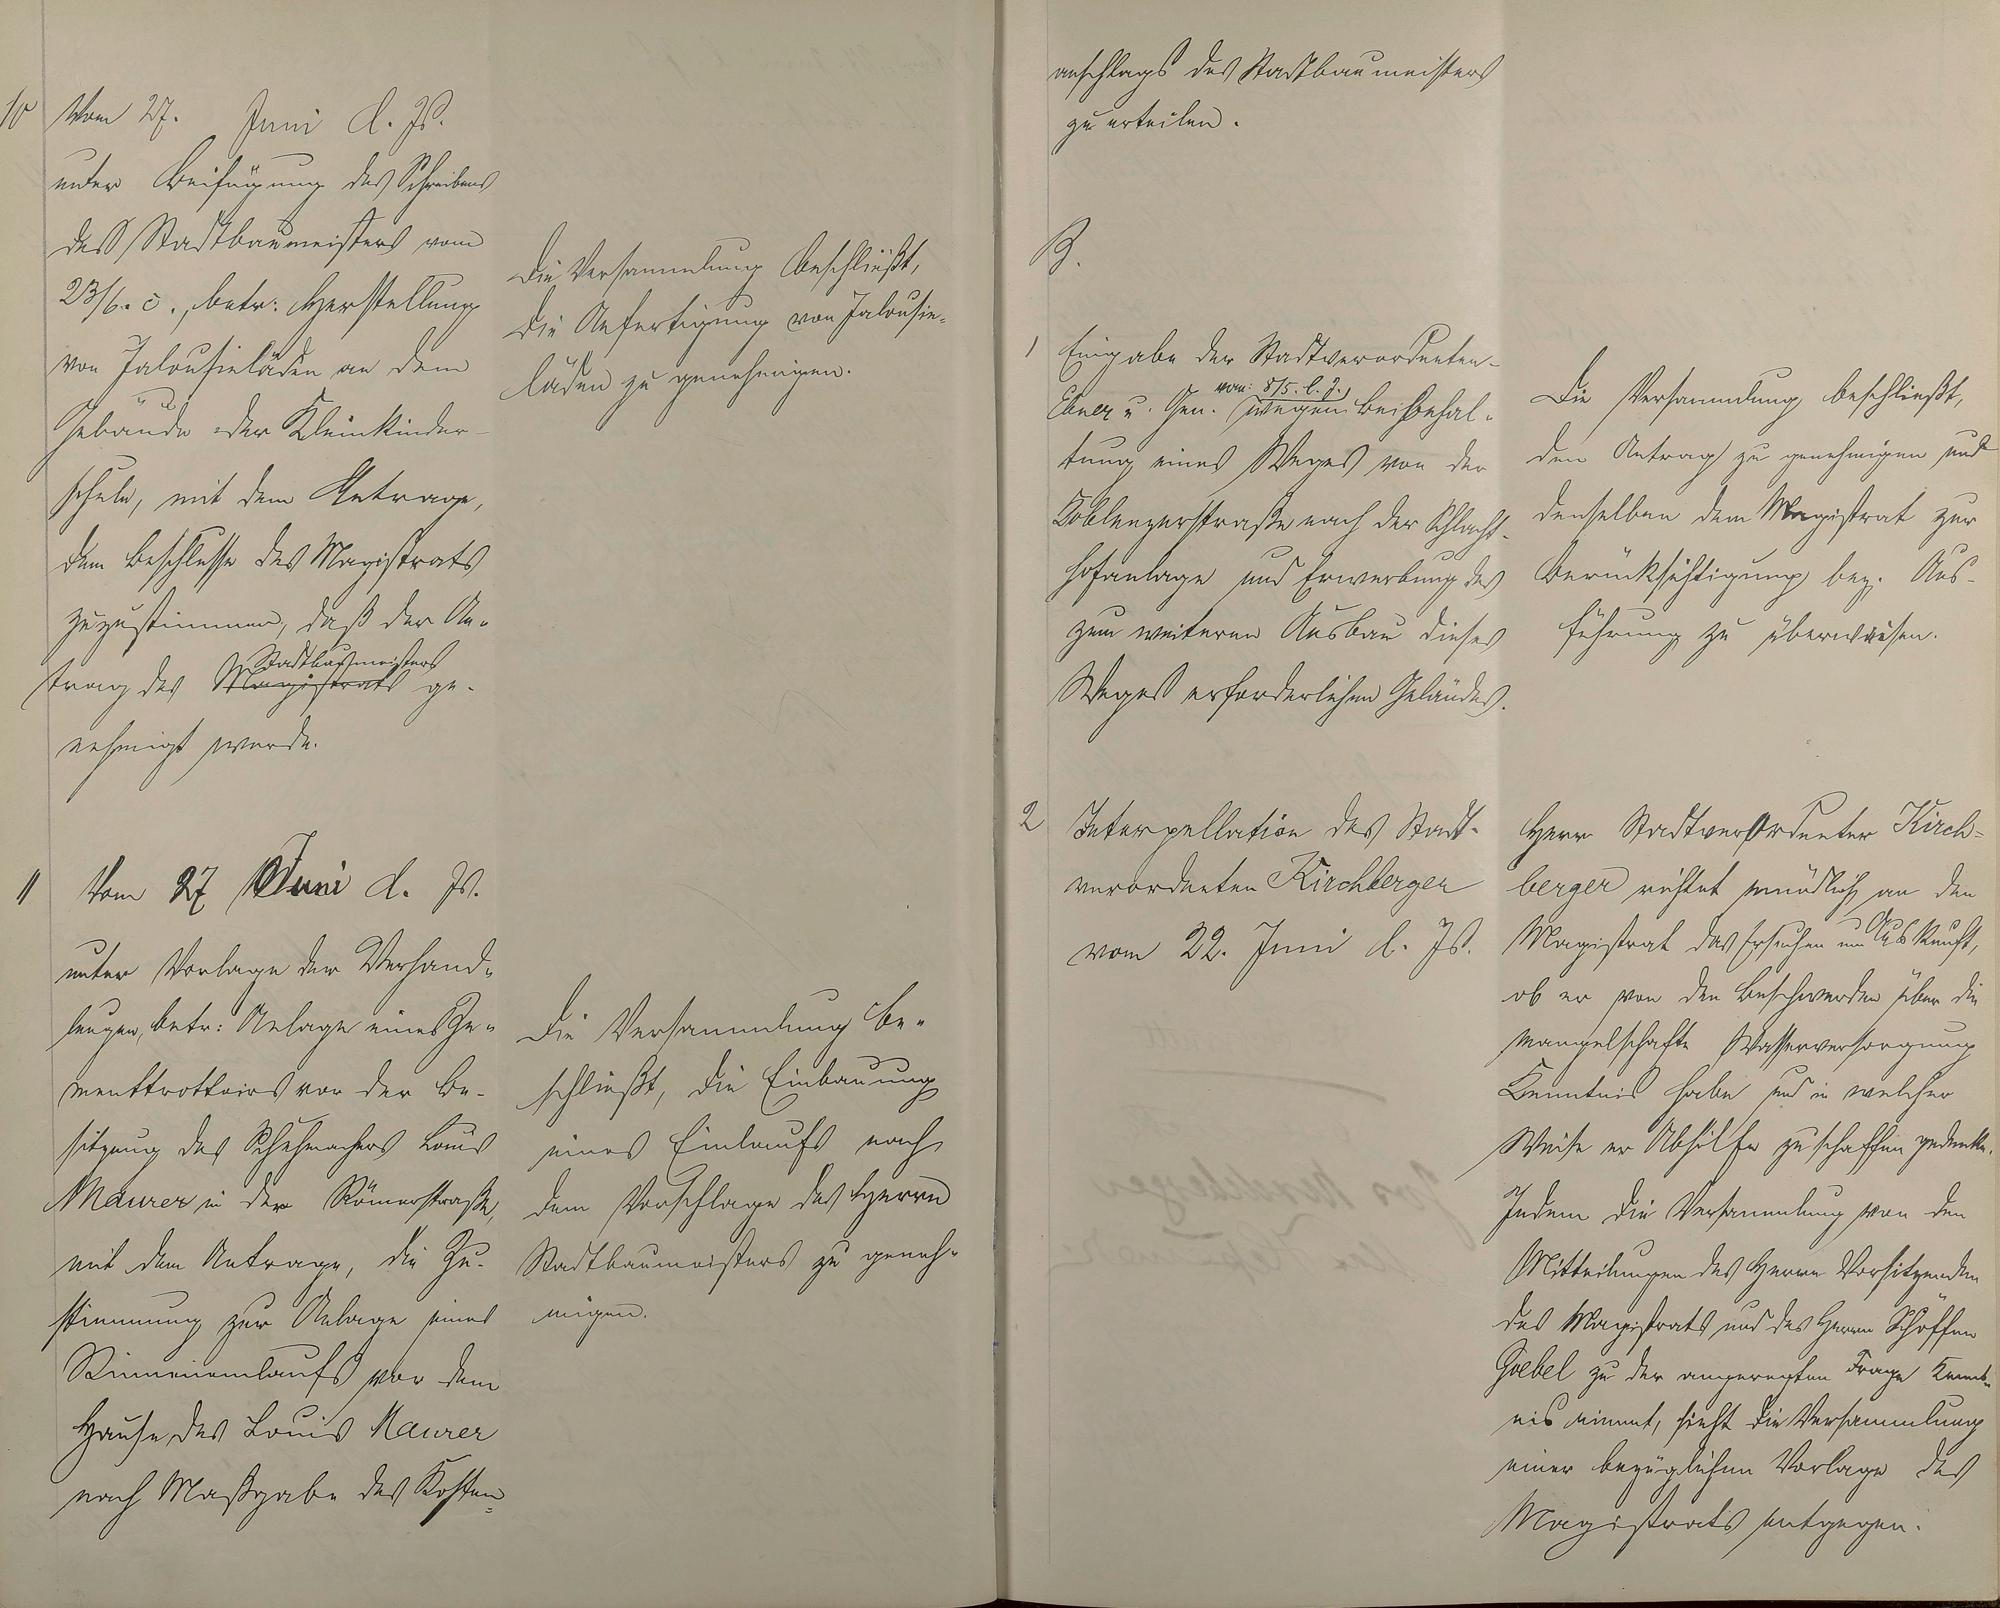 10 Vom 27. Juni d. Js.
unter Beifügung des Schreibens
des Stadtbaumeisters vom
23/6. c., betr: Herstellung
von Jalousieläden an dem
Gebäude der Kleinkinder-
schule, mit dem Antrage,
dem Beschlusse des Magistrats
zuzustimmen, daß der An-
trag des Magistrats Stadtbaumeisters ge-
nehmigt werde.
Die Versammlung beschließt,
die Anfertigung von Jalousie-
läden zu genehmigen.
11 Vom 27 Juni d. Js.
unter Vorlage der Verhand-
lungen, betr: Anlage eines Ze-
menttrottoirs vor der Be-
sitzung des Schuhmachers Louis
Maurer in der Römerstraße,
mit dem Antrage, die Zu-
stimmung zur Anlage eines
Rinneneinlaufs vor dem
Hause des Louis Maurer
nach Maßgabe des Kosten-
Die Versammlung be-
schließt, die Einbauung
eines Einlaufs nach
dem Vorschlage des Herrn
Stadtbaumeisters zu geneh-
migen.
anschlags des Stadtbaumeisters
zu erteilen.
B.
1 Eingabe der Stadtverordneten
Ebner u. Gen. vom: 8/5. l. J. wegen Beibehal-
tung eines Weges von der
Koblenzerstraße nach der Schlacht-
hofanlage und Erwerbung des
zum weiteren Ausbau dieses
Weges erforderlichen Geländes.
Die Versammlung beschließt,
den Antrag zu genehmigen und
denselben dem Magistrat zur
Berücksichtigung bez. Aus-
führung zu überweisen.
2 Interpellation des Stadt-
verordneten Kirchberger
vom 22. Juni d. Js.
Herr Stadtverordneter Kirch-
berger richtet mündlich an den
Magistrat das Ersuchen um Auskunft,
ob er von den Beschwerden über die
mangelhafte Wasserversorgung
Kenntnis habe und in welcher
Weise er Abhilfe zu schaffen gedenke.
Indem die Versammlung von den
Mitteilungen des Herrn Vorsitzenden
des Magistrats und des Herrn Schöffen
Goebel zu der angeregten Frage Kennt-
nis nimmt, sieht die Versammlung
einer bezüglichen Vorlage des
Magistrats entgegen.